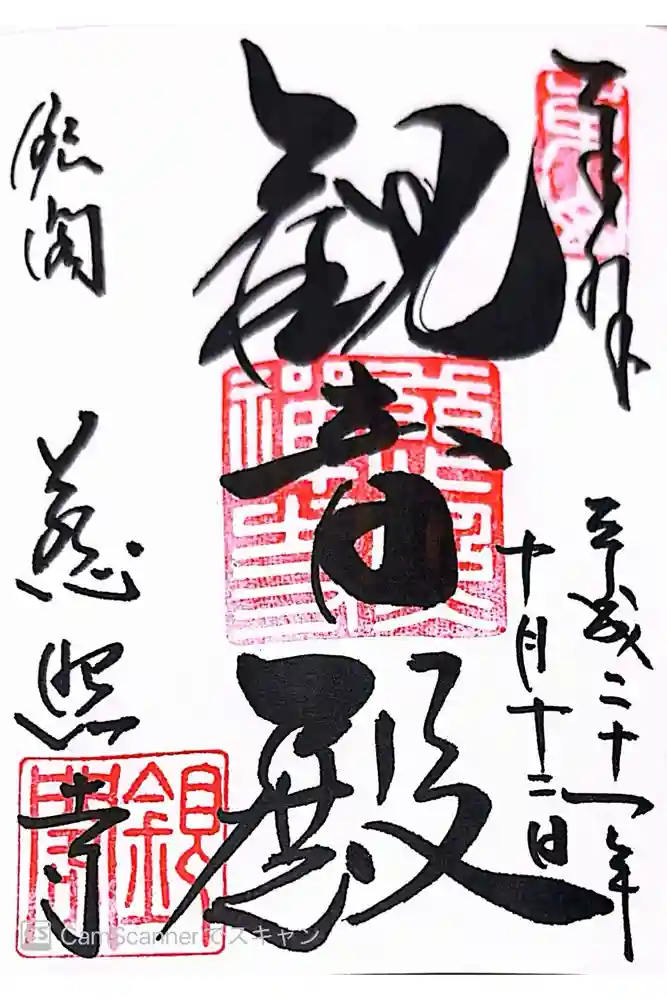 奉拝
平成二十一年
十月十二日
観音殿
慈照禅寺
銀閣
慈照寺
銀閣
CamScanner でスキャン